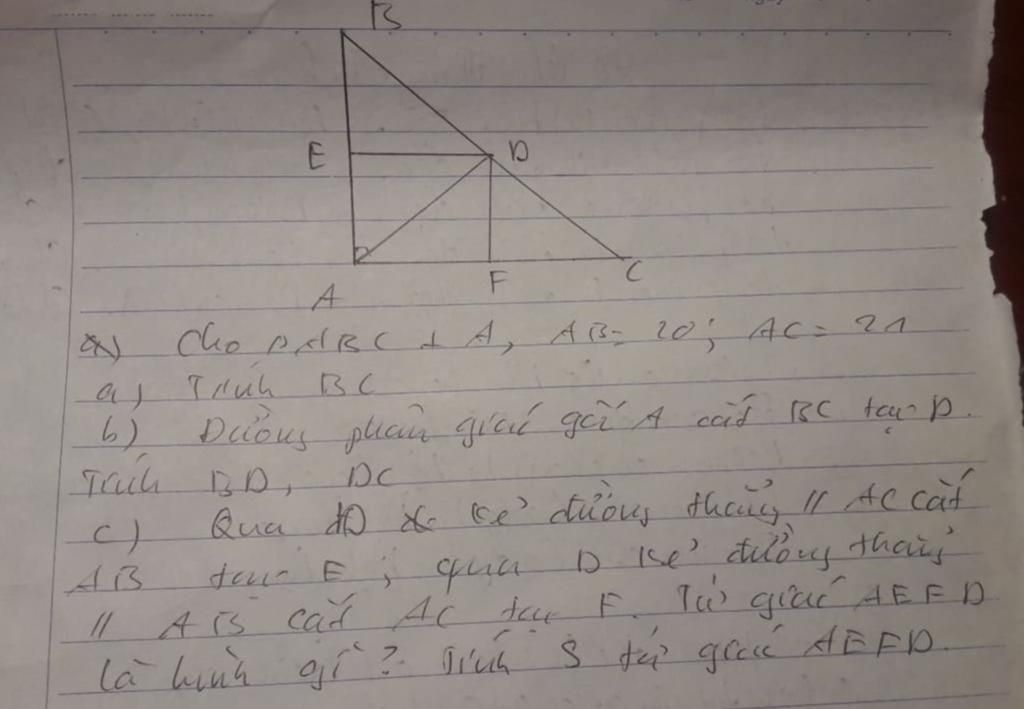 B
E
D
A
F
C
Cho △ABC ⊥ A, AB = 20; AC = 21
a) Tính BC
b) Đường phân giác góc A cắt BC tại D.
Tính BD, DC
c) Qua D kẻ đường thẳng // AC cắt
AB tại E; qua D kẻ đường thẳng
// AB cắt AC tại F. Tứ giác AEFD
là hình gì? Tính S tứ giác AEFD.